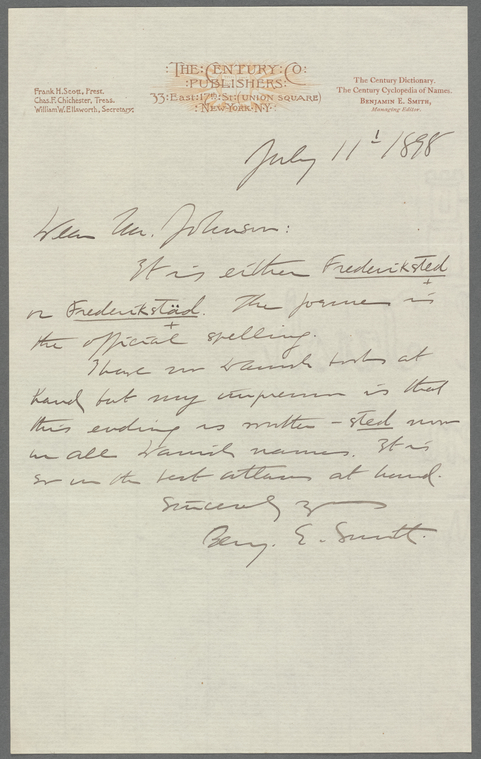 THE CENTURY CO:
PUBLISHERS:
33 EAST 17TH ST (UNION SQUARE)
NEW YORK N.Y.
Frank H. Scott, Prest.
Chas. F. Chichester, Treas.
William W. Ellsworth, Secretary.
The Century Dictionary.
The Century Cyclopedia of Names.
Benjamin E. Smith,
Managing Editor.
July 11 1898
Dear Mr. Johnson:
It is either Frederiksted
or Frederikstäd. The former is
the official spelling.
I have no Danish books at
hand but my impression is that
this ending is written -sted now
in all Danish names. It is
so in the best atlases at hand.
Sincerely yrs
Benj. E. Smith.